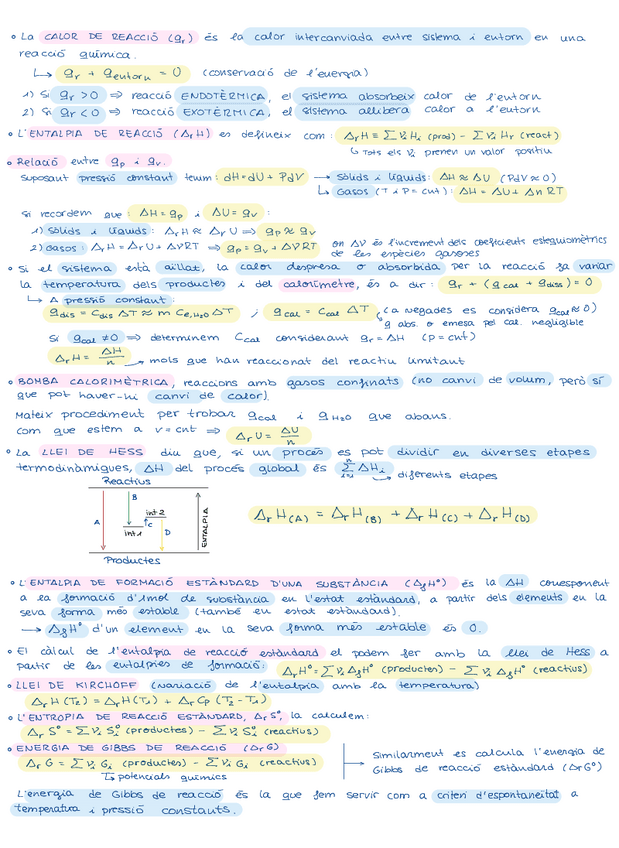 • La CALOR DE REACCIÓ (qr) és la calor intercanviada entre sistema i entorn en una
reacció química.
↳ qr + qentorn = 0 (conservació de l'energia)
1) Si qr > 0 ⇒ reacció ENDOTÈRMICA, el sistema absorbeix calor de l'entorn
2) Si qr < 0 ⇒ reacció EXOTÈRMICA, el sistema allibera calor a l'entorn
• L'ENTALPIA DE REACCIÓ (ΔrH) es defineix com: ΔrH ≡ ∑ νi Hi (prod) − ∑ νi Hr (react)
↳ Tots els νi prenen un valor positiu
• Relació entre qp i qv.
Suposant pressió constant tenim: dH = dU + PdV → Sòlids i líquids: ΔH ≈ ΔU (PdV ≈ 0)
↳ Gasos (T i P = cnt): ΔH = ΔU + Δn RT
Si recordem que: ΔH = qp i ΔU = qv:
1) Sòlids i líquids: ΔrH ≈ ΔrU ⇒ qp ≈ qv
2) Gasos: ΔrH = ΔrU + ΔνRT ⇒ qp = qv + ΔνRT on Δν és l'increment dels coeficients estequiomètrics
de les espècies gasoses
• Si el sistema està aïllat, la calor despresa o absorbida per la reacció fa variar
la temperatura dels productes i del calorímetre, és a dir: qr + (qcal + qdiss) = 0
↳ A pressió constant:
qdis = Cdis ΔT ≈ m Ce,H2O ΔT i qcal = Ccal ΔT (a vegades es considera qcal ≈ 0)
q abs. o emesa pel cal. negligible
Si qcal ≠ 0 ⇒ determinem Ccal considerant qr = ΔH (P = cnt)
ΔrH = ΔH/n → mols que han reaccionat del reactiu limitant
• BOMBA CALORIMÈTRICA, reaccions amb gasos confinats (no canvi de volum, però sí
que pot haver-hi canvi de calor).
Mateix procediment per trobar qcal i qH2O que abans.
Com que estem a v = cnt ⇒ ΔrU = ΔU/n
• La LLEI DE HESS diu que, si un procés es pot dividir en diverses etapes
termodinàmiques, ΔH del procés global és ∑ ΔHi → diferents etapes
Reactius
A
B
int 1
int 2
C
D
ENTALPIA
Productes
ΔrH(A) = ΔrH(B) + ΔrH(C) + ΔrH(D)
• L'ENTALPIA DE FORMACIÓ ESTÀNDARD D'UNA SUBSTÀNCIA (ΔfH°) és la ΔH corresponent
a la formació d'1mol de substància en l'estat estàndard, a partir dels elements en la
seva forma més estable (també en estat estàndard).
→ ΔfH° d'un element en la seva forma més estable és 0.
• El càlcul de l'entalpia de reacció estàndard el podem fer amb la llei de Hess a
partir de les entalpies de formació: ΔrH° = ∑ νi ΔfH° (productes) − ∑ νi ΔfH° (reactius)
• LLEI DE KIRCHOFF (variació de l'entalpia amb la temperatura)
ΔrH(T2) = ΔrH(T1) + ΔrCp (T2 − T1)
• L'ENTROPIA DE REACCIÓ ESTÀNDARD, ΔrS°, la calculem:
ΔrS° = ∑ νi Si° (productes) − ∑ νi Si° (reactius)
• ENERGIA DE GIBBS DE REACCIÓ (ΔrG)
ΔrG = ∑ νi Gi (productes) − ∑ νi Gi (reactius)
↳ potencials químics
→ Similarment es calcula l'energia de
Gibbs de reacció estàndard (ΔrG°)
L'energia de Gibbs de reacció és la que fem servir com a criteri d'espontaneïtat a
temperatura i pressió constants.